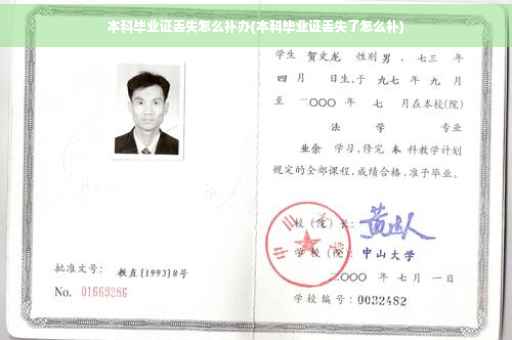 本科毕业证丢失怎么补办(本科毕业证丢失了怎么补)
学生 贺文龙 性别 男 、七三 年
四 月 日生,于 九七 年 九 月
至 二〇〇〇 年 七 月在本校(院)
法 学 专业
业余 学习,修完 本 科教学计划
规定的全部课程,成绩合格,准予毕业。
校(院)长:
学校(院): 中山大学
二〇〇〇 年 七 月 一 日
学校编号: 0032482
批准文号: 教直[1993]8号
No. 01669286